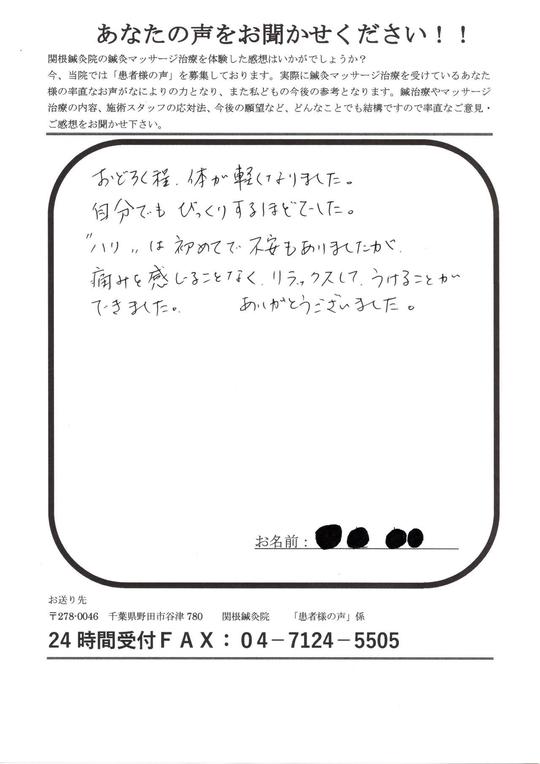 あなたの声をお聞かせください！！
関根鍼灸院の鍼灸マッサージ治療を体験した感想はいかがでしょうか？
今、当院では「患者様の声」を募集しております。実際に鍼灸マッサージ治療を受けているあなた
様の率直なお声がなによりの力となり、また私どもの今後の参考となります。鍼治療やマッサージ
治療の内容、施術スタッフの応対法、今後の願望など、どんなことでも結構ですので率直なご意見・
ご感想をお聞かせ下さい。
おどろく程、体が軽くなりました。
自分でも びっくりするほどでした。
"ハリ" は 初めてで 不安もありましたが、
痛みを感じることなく、リラックスして、うけることが
できました。 ありがとうございました。
お名前：
お送り先
〒278-0046 千葉県野田市谷津 780 関根鍼灸院 「患者様の声」係
24 時間受付ＦＡＸ：０４－7124－5505